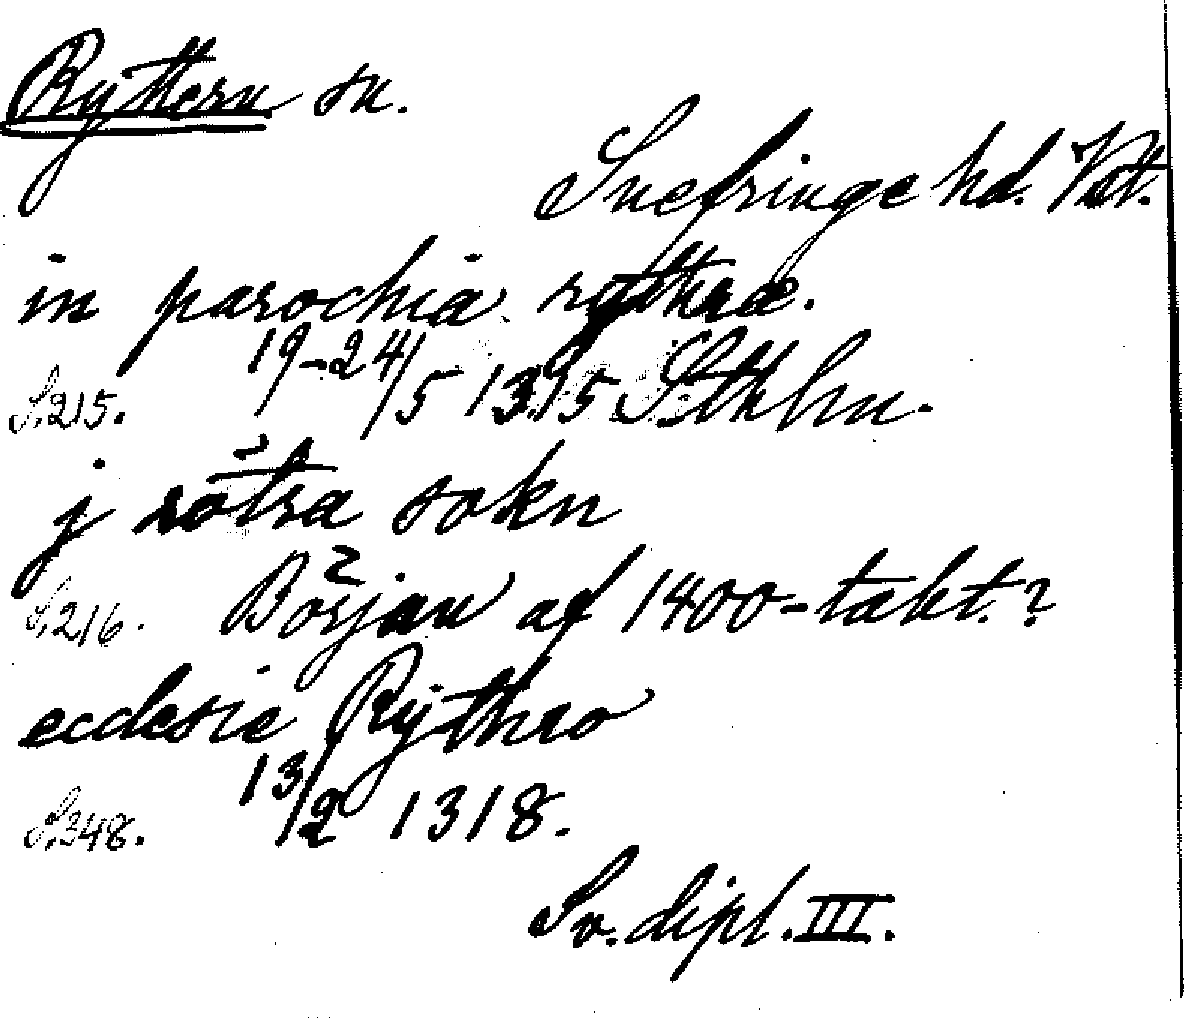 Ryttern sn.
Snefringe hd. Vstl.
in parochia rythræ.
S. 215. 19-24/5 1315 Sthlm.
j rötra sokn
S. 216. Början af 1400-talet.?
ecclesie Rythro
S. 348. 13/2 1318.
Sv. dipl. III.